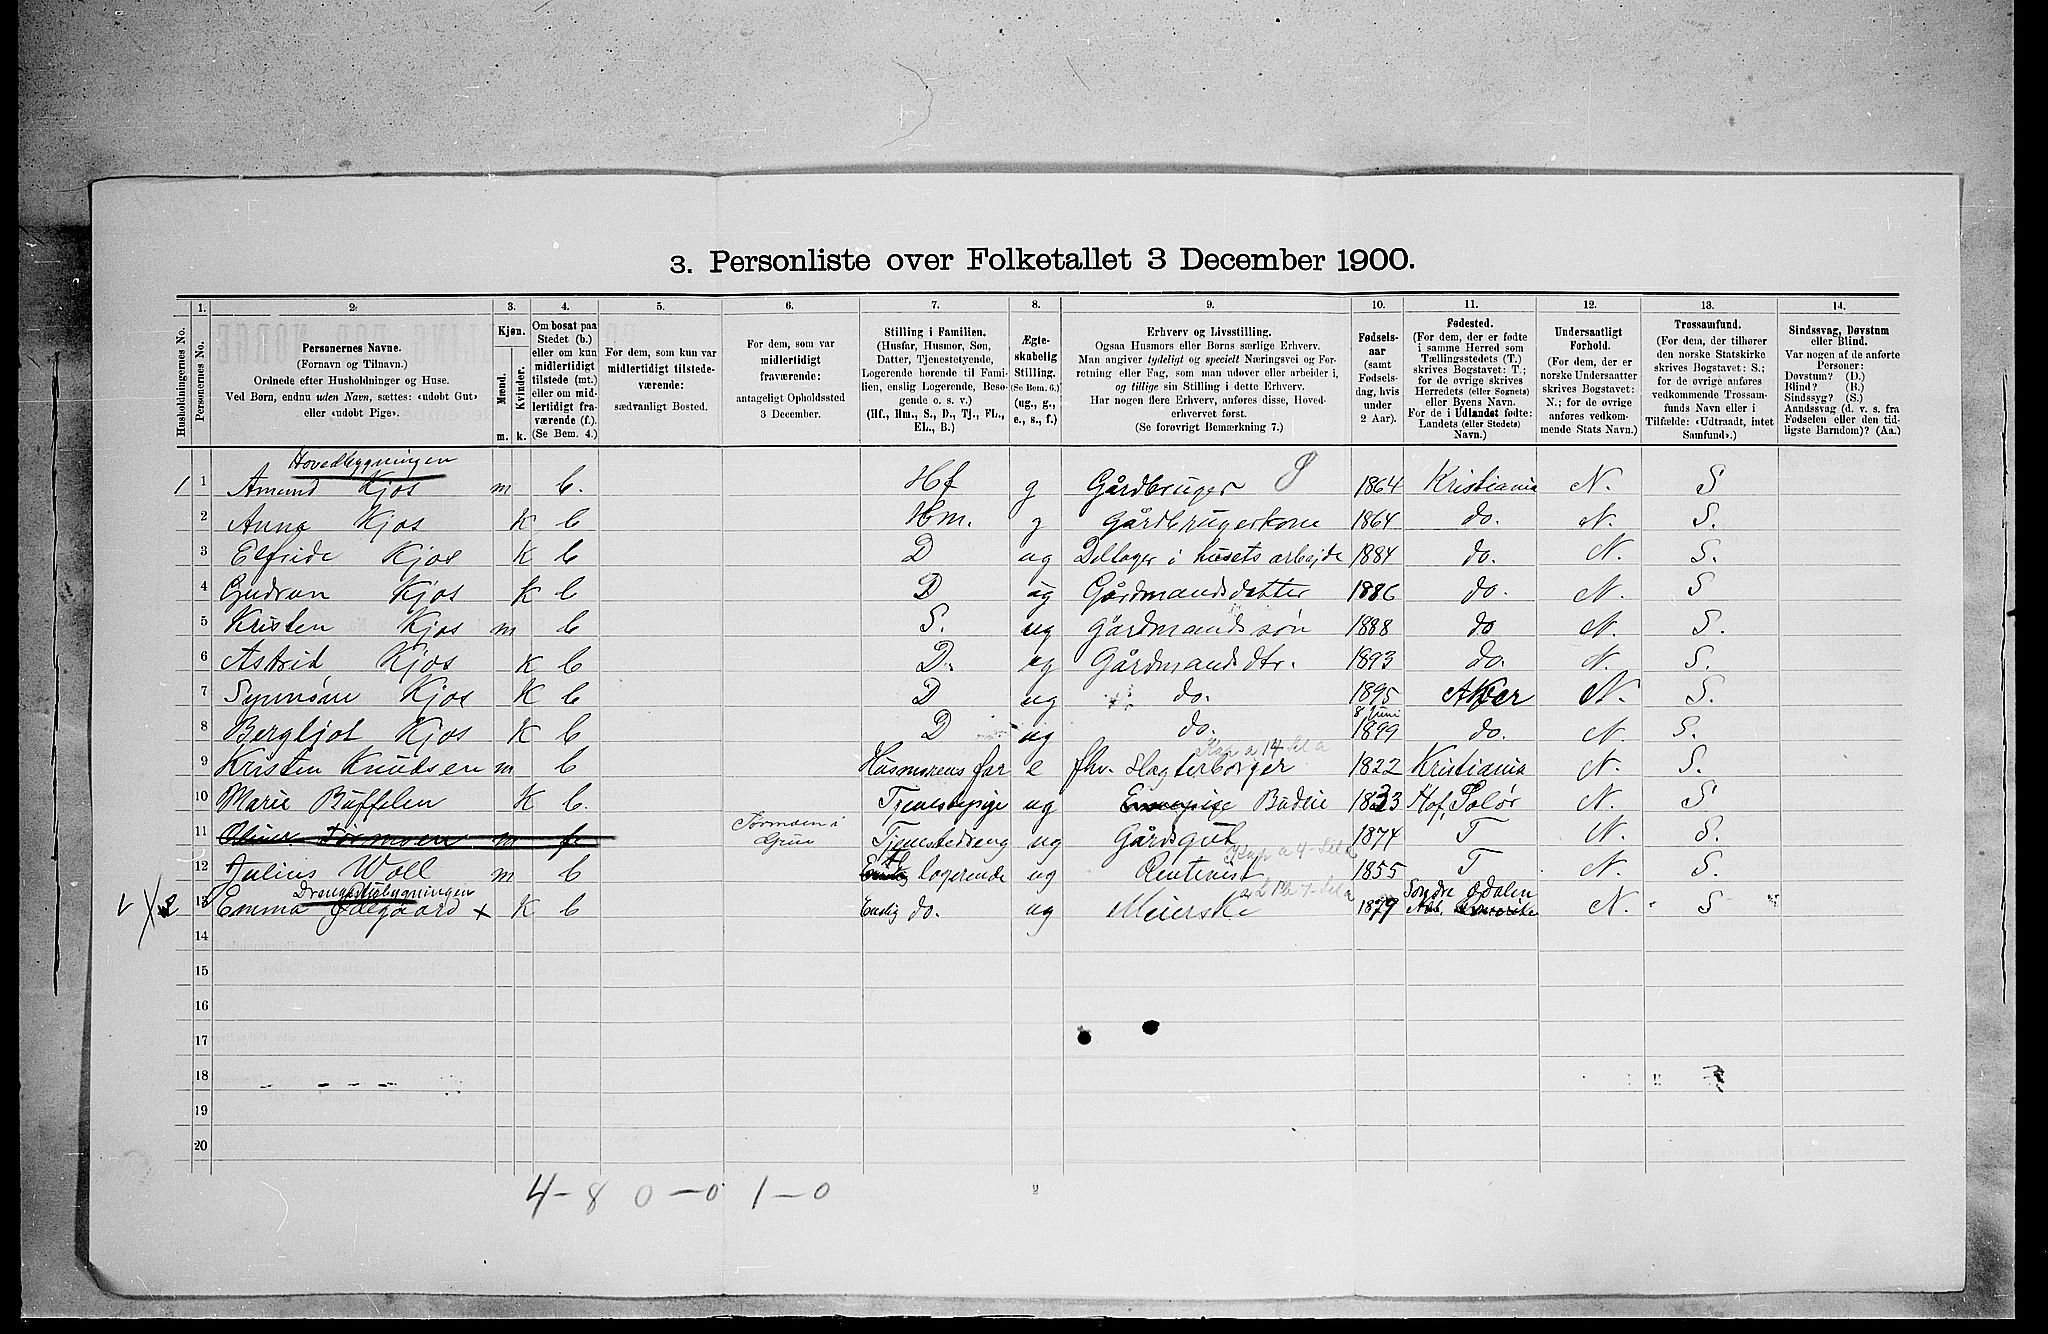 3. Personliste over Folketallet 3 December 1900.
1. 2. 3. 4. 5. 6. 7. 8. 9. 10. 11. 12. 13. 14.
Husholdningernes No.
Personernes No.
Personernes Navne.
(Fornavn og Tilnavn.)
Ordnede efter Husholdninger og Huse.
Ved Børn, endnu uden Navn, sættes: «udøbt Gut»
eller «udøbt Pige».
Kjøn.
Mænd. Kvinder.
m. k.
Om bosat paa
Stedet (b.)
eller om kun
midlertidigt
tilstede (mt.)
eller om mid-
lertidigt fra-
værende (f.).
(Se Bem. 4.)
For dem, som kun var
midlertidigt tilstede-
værende:
sædvanligt Bosted.
For dem, som var
midlertidigt
fraværende:
antageligt Opholdssted
3 December.
Stilling i Familien.
(Husfar, Husmor, Søn,
Datter, Tjenestetyende,
Logerende hørende til Fami-
lien, enslig Logerende, Besø-
gende o. s. v.)
(Hf., Hm., S., D., Tj., FL.,
EL., B.)
Ægte-
skabelig
Stilling.
(Se Bem. 6.)
(ug., g.,
e., s., f.)
Erhverv og Livsstilling.
Ogsaa Husmors eller Børns særlige Erhverv.
Man angiver tydeligt og specielt Næringsvei og For-
retning eller Fag, som man udøver eller arbeider i,
og tillige sin Stilling i dette Erhverv.
Har nogen flere Erhverv, anføres disse, Hoved-
erhvervet først.
(Se forøvrigt Bemærkning 7.)
Fødsels-
aar
(samt
Fødsels-
dag, hvis
under
2 Aar).
Fødested.
(For dem, der er fødte
i samme Herred som
Tællingsstedets (T.)
skrives Bogstavet: T.;
for de øvrige skrives
Herredets (eller Sognets)
eller Byens Navn.
For de i Udlandet fødte:
Landets (eller Stedets)
Navn.)
Undersaatligt
Forhold.
(For dem, der er
norske Undersaatter
skrives Bogstavet:
N.; for de øvrige
anføres vedkom-
mende Stats Navn.)
Trossamfund.
(For dem, der tilhører
den norske Statskirke
skrives Bogstavet: S.;
for de øvrige anføres
vedkommende Trossam-
funds Navn eller i
Tilfælde: «Udtraadt, intet
Samfund».)
Sindssvag, Døvstum
eller Blind.
Var nogen af de anførte
Personer:
Døvstum? (D.)
Blind? (B.)
Sindssyg? (S.)
Aandssvag (d. v. s. fra
Fødselen eller den tid-
ligste Barndom)? (Aa.)
Hovedbygningen
1 1 Amund Kjos m b. Hf g Gårdbruger 1864 Kristiania N. S
2 Anna Kjos K b Hm. g Gårdbrugerkone 1864 do. N. S.
3 Elfride Kjos K b D ug Deltager i husets arbejde 1884 do. N. S.
4 Gudrun Kjos K b D ug Gårdmandsdatter 1886 do. N. S
5 Kristen Kjos m b S. ug Gårdmandssøn 1888 do N. S.
6 Astrid Kjos K b D. ug Gårdmandsdtr. 1893 do. N. S.
7 Synnøve Kjos K b D ug do. 1895 Aker N. S.
8 Juni
8 Bergljot Kjos K b D ug do. 1899 do. N. S.
9 Kristen Knudsen m b Husmorens far e fhv. Slagterborger 1822 Kristiania N. S.
10 Marie Büffelen K b. Tjenestepige ug Budeie 1833 Hof, Solør N. S
11 Oliver Tormoen m f. Tormoen i Grue Tjenestedreng ug Gårdsgut 1874 T N. S.
12 Julius Woll m b logerende ug Rentenist 1855 T N. S.
Drengestubygningen
2 13 Emma Ødegaard x K b Enslig do. ug Meierske 1879 Søndre Odalen N. S
14
15
16
17
18
19
20
4-8 0-0 1-0